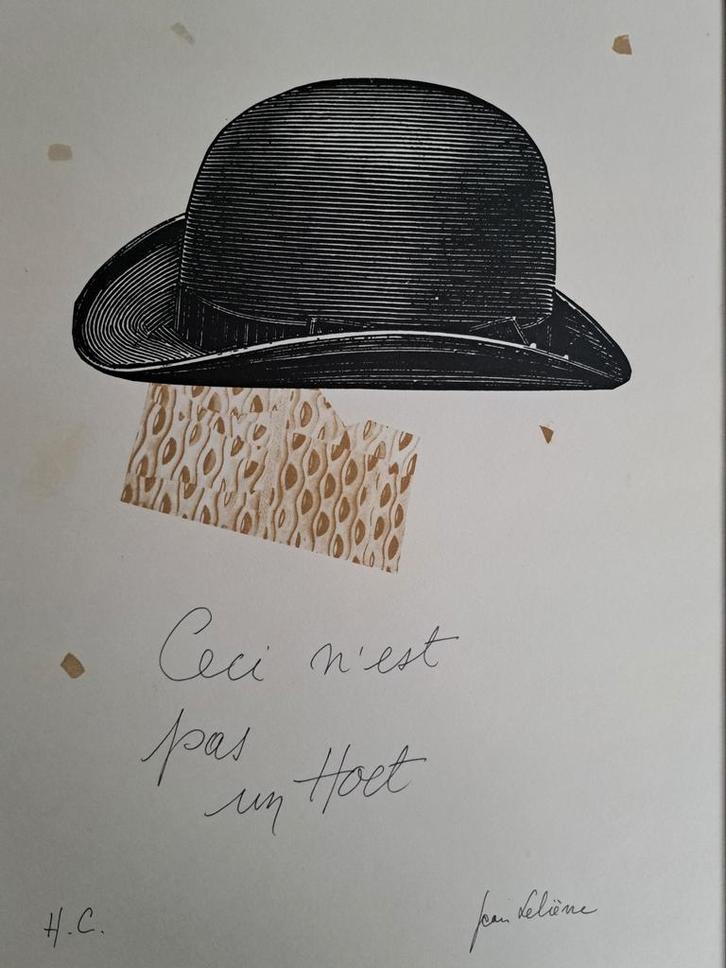 Ceci n'est
pas
un Hoet
H.C.
Jean Lelièvre